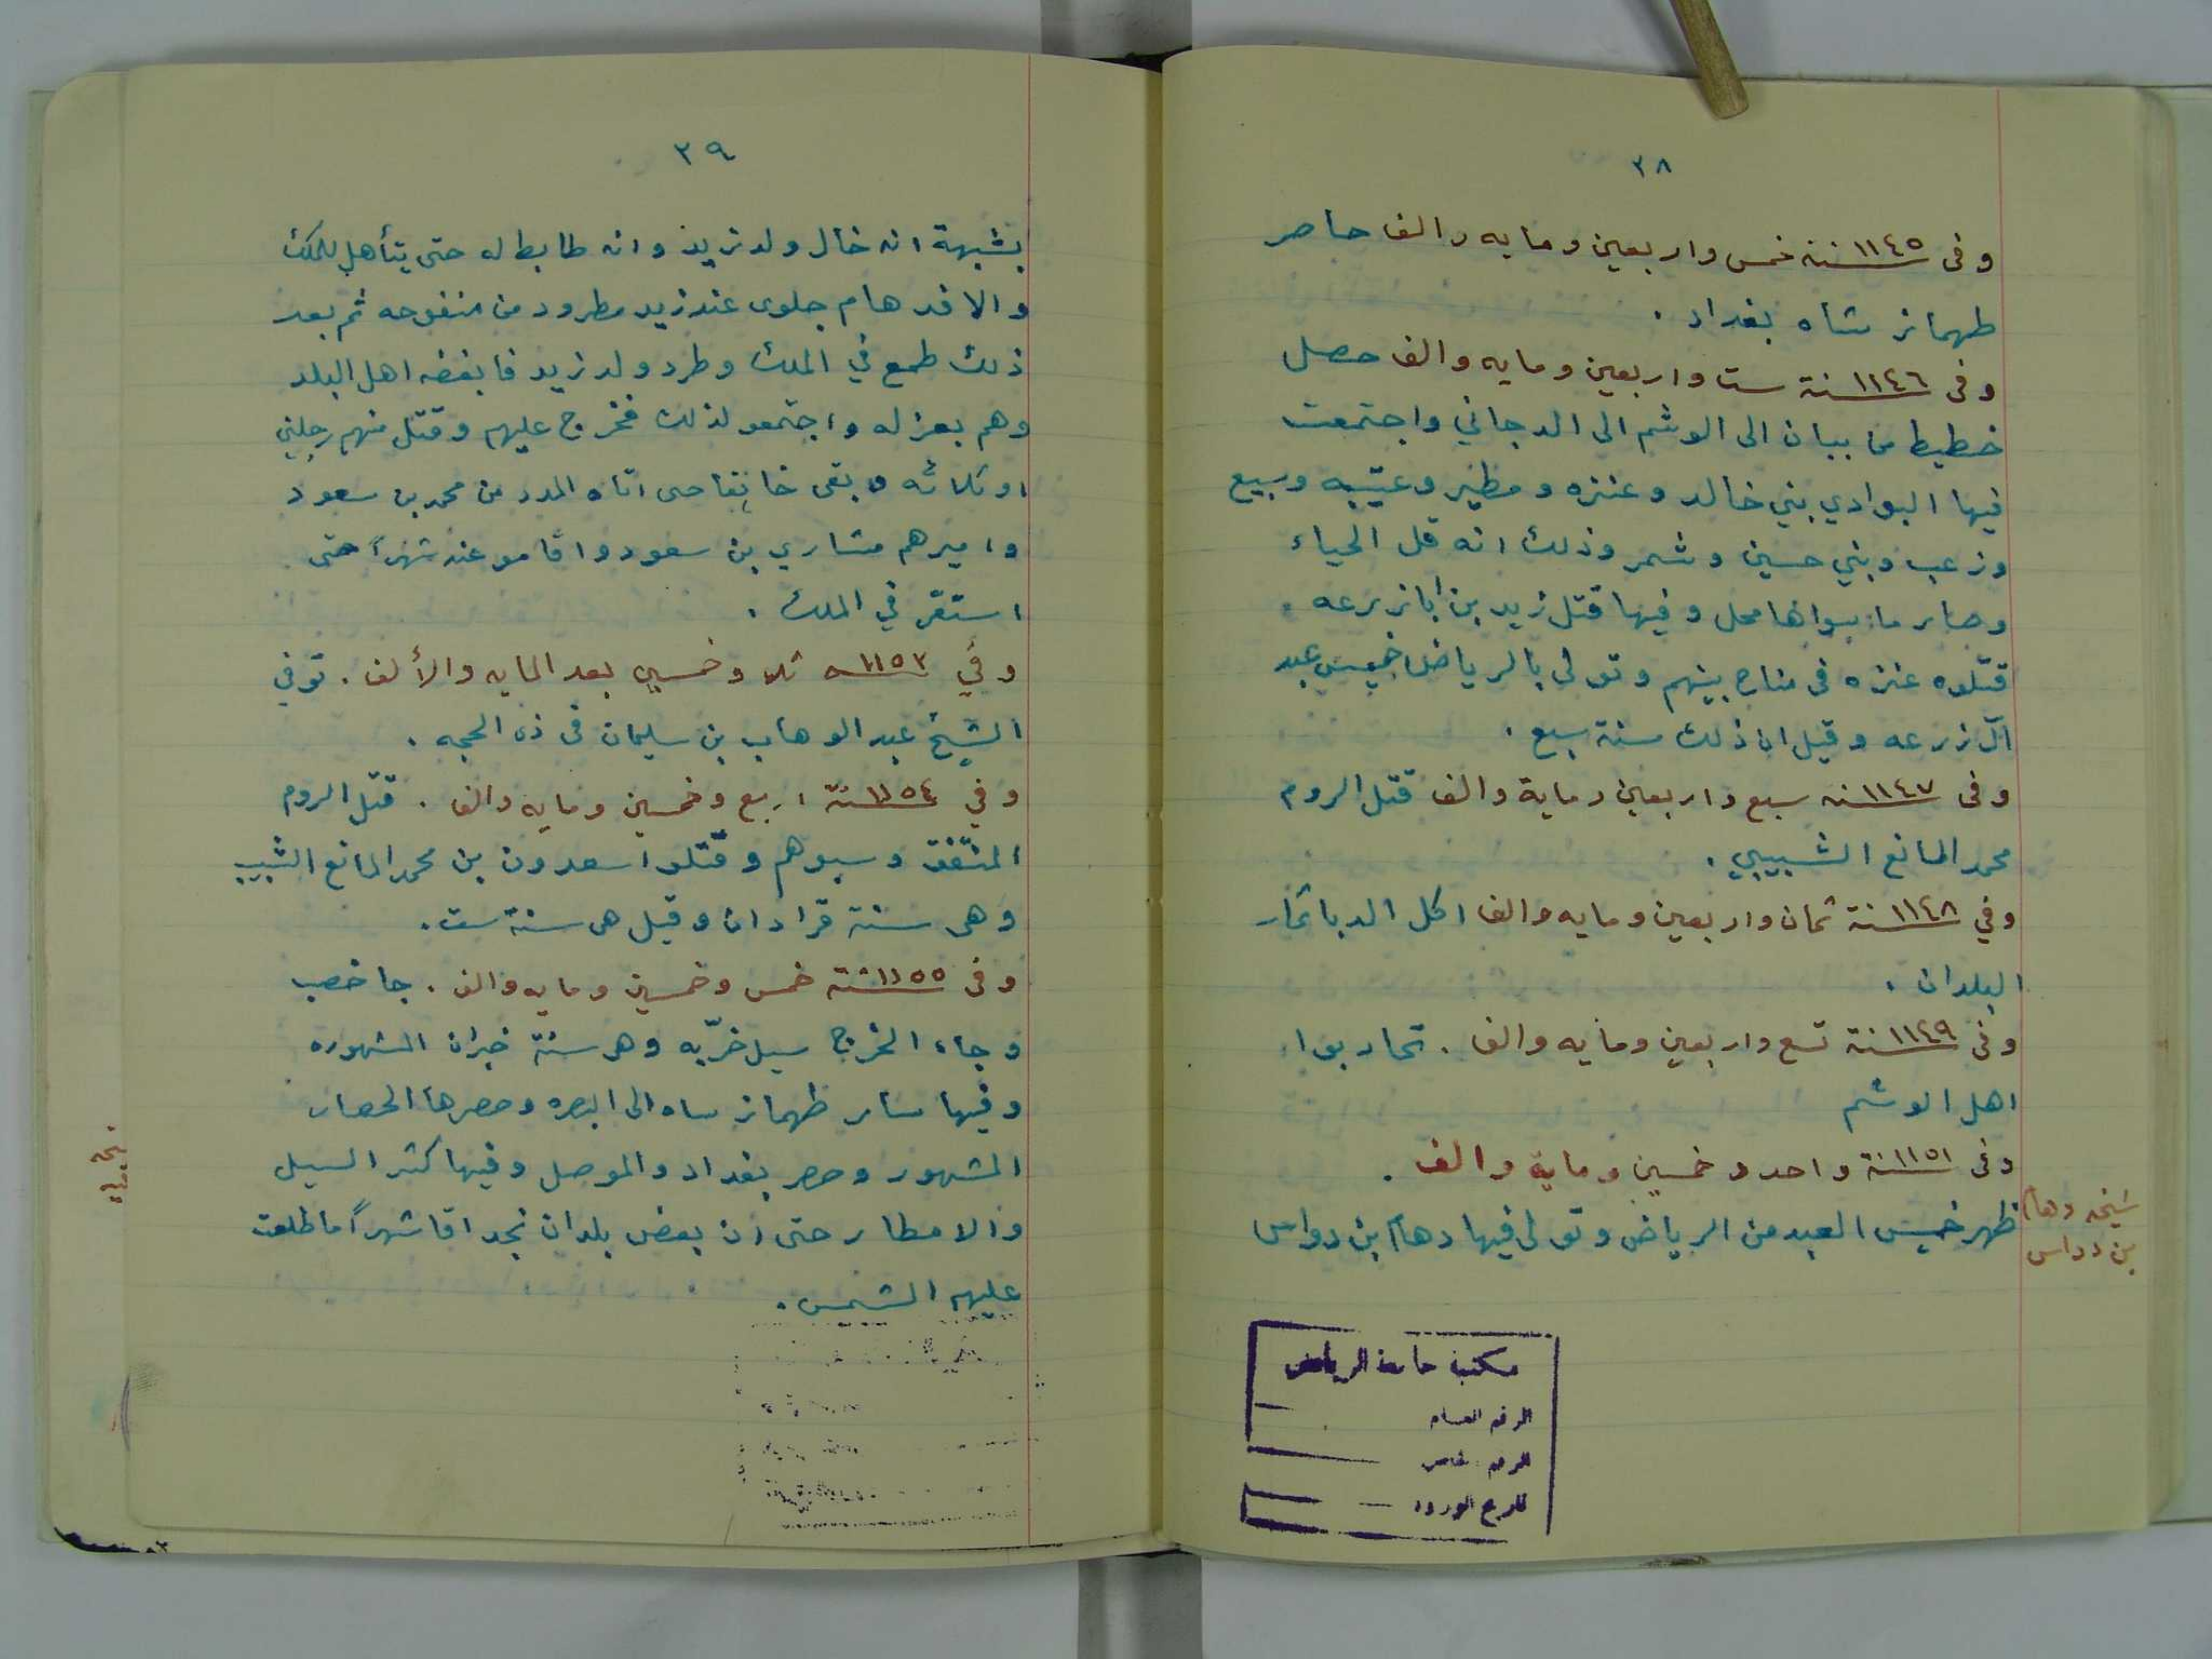 ٢٨
وفى ١١٤٥سنة خمس واربعين ومايه والف حاصر
طهماز شاه بغداد .
وفى ١١٤٦سنة ست واربعين ومايه والف حصل
خطيط من ببان الى الوشم الى الدجاني واجتمعت
فيها البوادي بني خالد وعنزه ومطير وعتيبه وسبيع
وزعب وبني حسين وشمر وذلك انه قل الحياء
وصار ما سواها محل وفيها قتل زيد بن ابا زرعه
قتلوه عنزه فى مناخ بينهم وتولى بالرياض خميس عبد
آل زرعه وقيل ان ذلك سنة سبع .
وفى ١١٤٧سنه سبع واربعين وماية والف قتل الروم
محمد المانع الشبيبي .
وفي ١١٤٨سنة ثمان واربعين ومايه والف اكل الدبا ثمار
البلدان .
وفى ١١٤٩سنة تسع واربعين ومايه والف . تحاربوا
اهل الوشم
وفى ١١٥١سنة واحد وخمسين وماية والف .
ظهر خميس العبد من الرياض وتولى فيها دهام بن دواس
شيخه دهام
بن دواس
مكتبة جامعة الرياض
الرقم العام
الرقم الخاص
تاريخ الورود
٢٩
بشبهة انه خال ولد زيد وانه ضابط له حتى يتأهل للملك
والا فدهام جلوى عند زيد مطرود من منفوحه ثم بعد
ذلك طمع في الملك وطرد ولد زيد فابغضه اهل البلد
وهم بعزله واجتمعو لذلك فخرج عليهم وقتل منهم رجلين
او ثلاثه وبقى خائفا حتى اتاه المدد من محمد بن سعود
واميرهم مشاري بن سعود واقامو عند شهراً حتى
استقر في الملك .
وفي ١١٥٣سـه ثلا وخمسين بعد المايه والألف . توفي
الشيخ عبد الوهاب بن سليمان فى ذى الحجه .
وفي ١١٥٤سنة اربع وخمسين ومايه والف . قتل الروم
المنتفق وسبوهم وقتلوا سعدون بن محمد المانع الشبيب
وهى سنة قرادان وقيل هى سنة ست .
وفى ١١٥٥سنة خمس وخمسين ومايه والف . جا خصب
وجاء الخرج سيل خرّبه وهى سنة خيران المشهوره
وفيها سار طهماز ساه الى البصره وحصرها الحصار
المشهور وحصر بغداد والموصل وفيها كثر السيل
والامطار حتى ان بعض بلدان نجد اقا شهراً ما طلعت
عليهم الشمس .